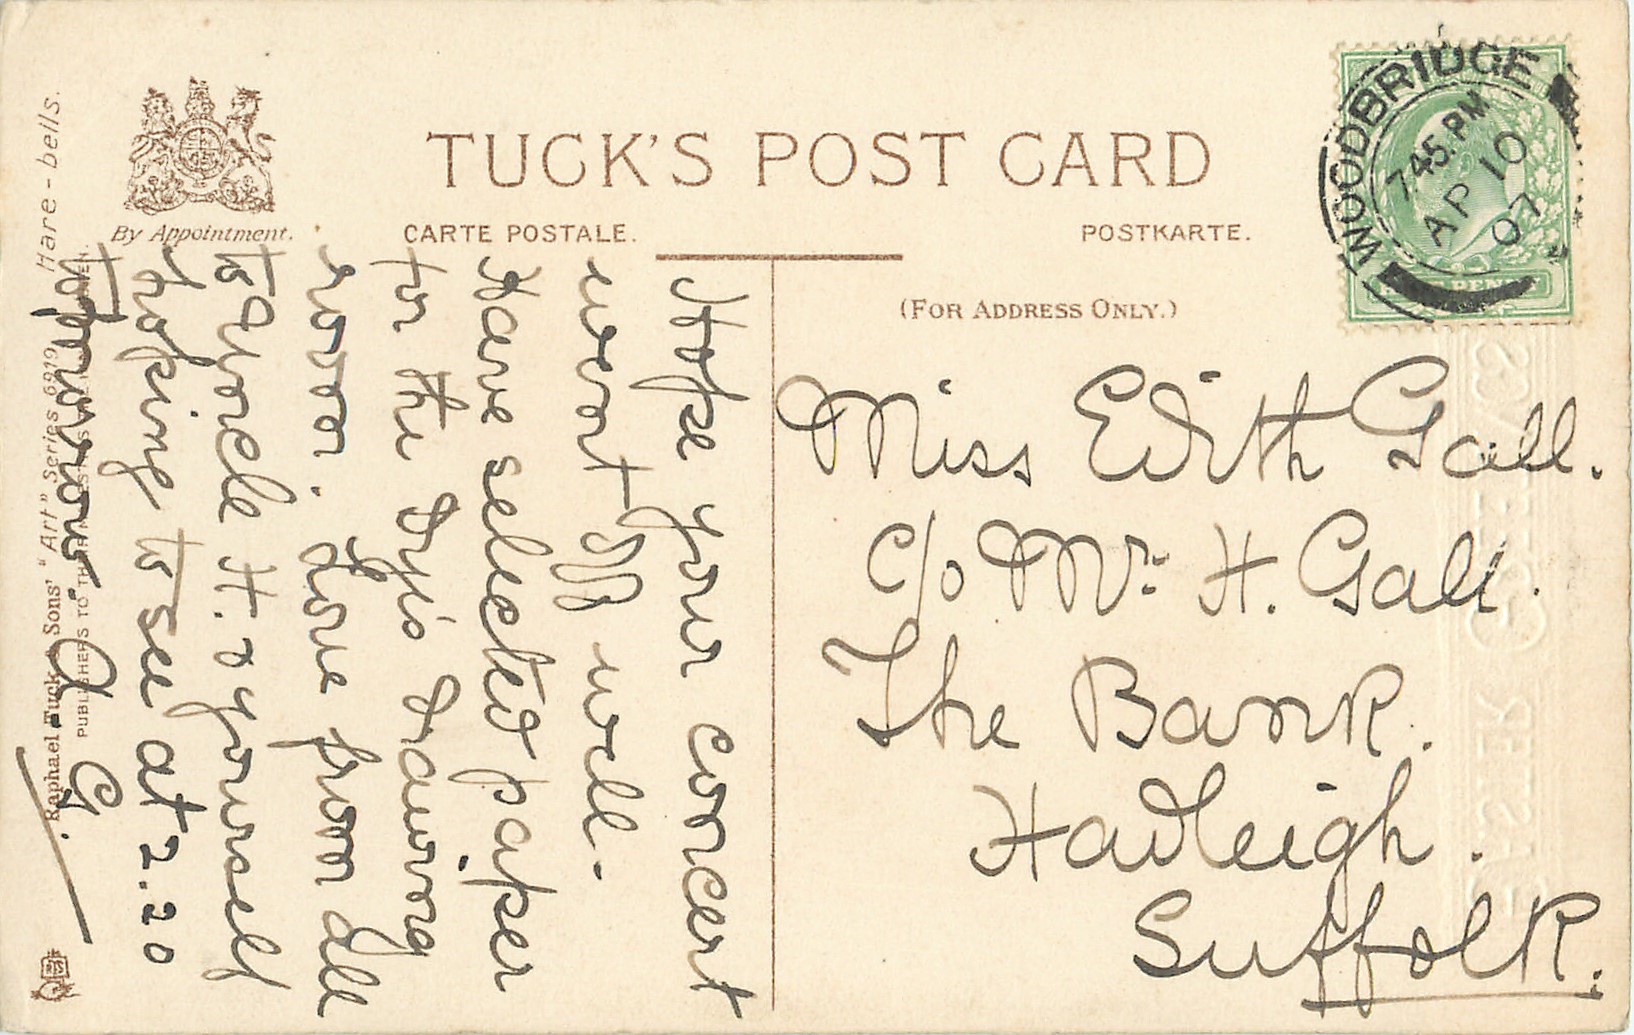 TUCK'S POST CARD
By Appointment.
CARTE POSTALE.
POSTKARTE.
(FOR ADDRESS ONLY.)
WOODBRIDGE
7.45.PM
AP 10
07
Hope your concert
went off well.
Have selected paper
for the drawing
room. Love from all
to Uncle H. & yourself
hoping to see at 2.20
Tomorrow. A G.
Miss Edith Gall.
C/o Mr. H. Gall.
The Bank.
Hadleigh.
Suffolk.
Hare-bells.
Raphael Tuck & Sons' "Art" Series 6919
PUBLISHERS TO
EASTER